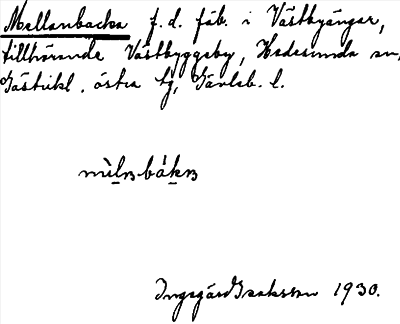 Mellanbacka f.d. fäb. i Västbyängar,
tillhörande Västbyggeby, Hedesunda sn,
Gästrikl. östra tg, Gävleb. l.
Ingegärd Isaksson 1930.